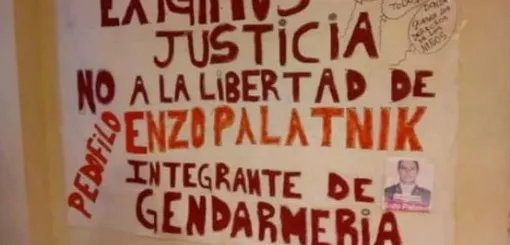 EXIGIMOS
JUSTICIA
NO A LA LIBERTAD DE
PEDOFILO
ENZO PALATNIK
INTEGRANTE DE
GENDARMERIA